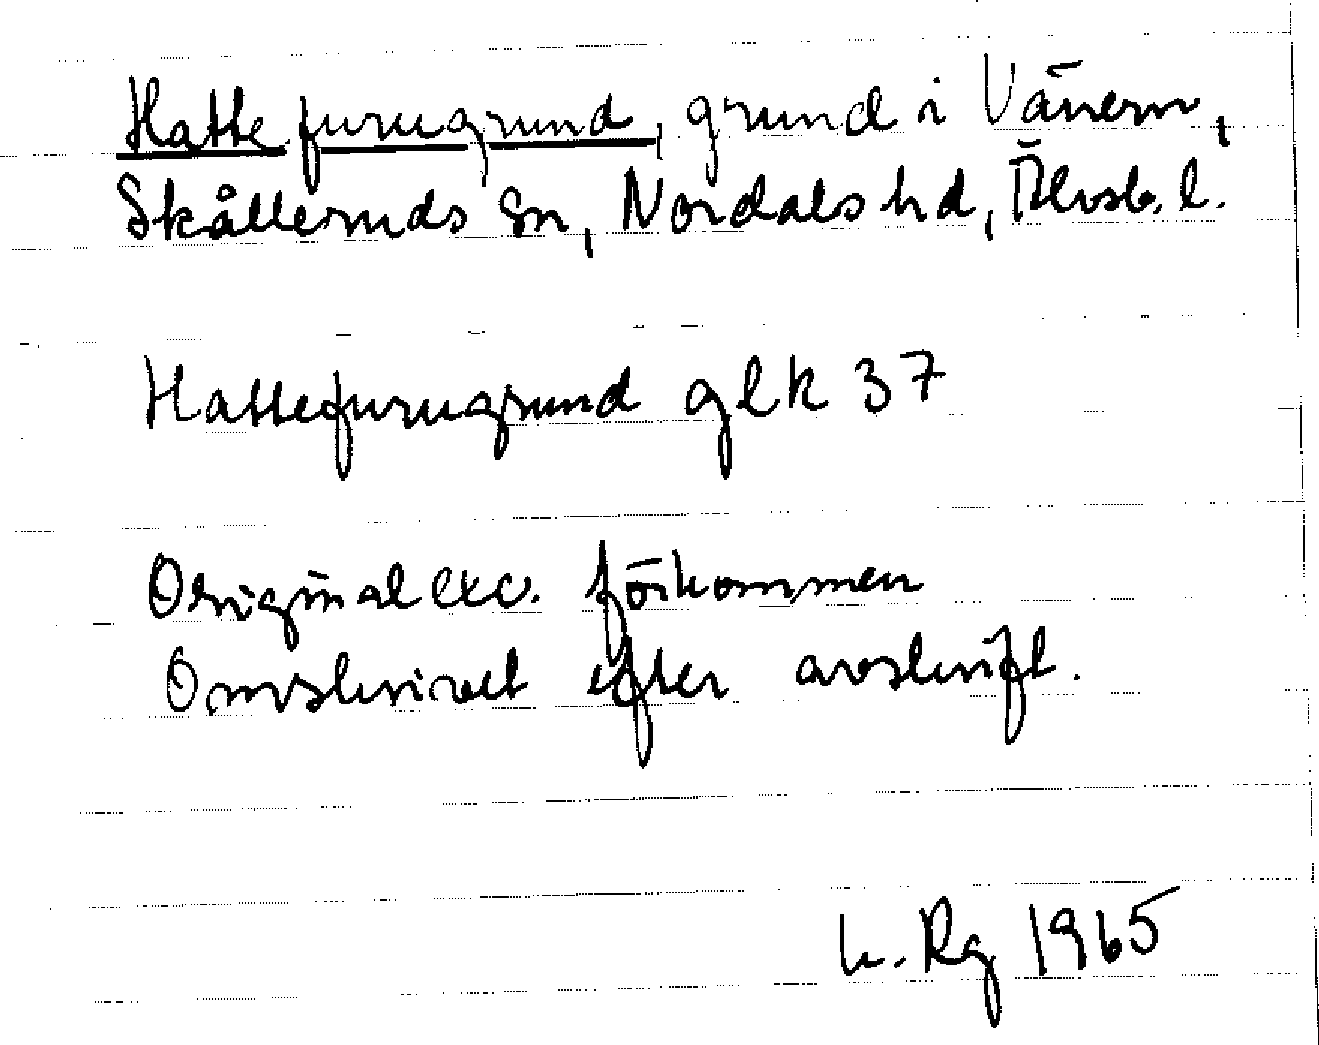 Hattefurugrund, grund i Vänern,
Skålleruds sn, Nordals hd, Älvsb. l.
Hattefurugrund glk 37
Originalexc. förkommen
Omskrivet efter avskrift.
Rg 1965